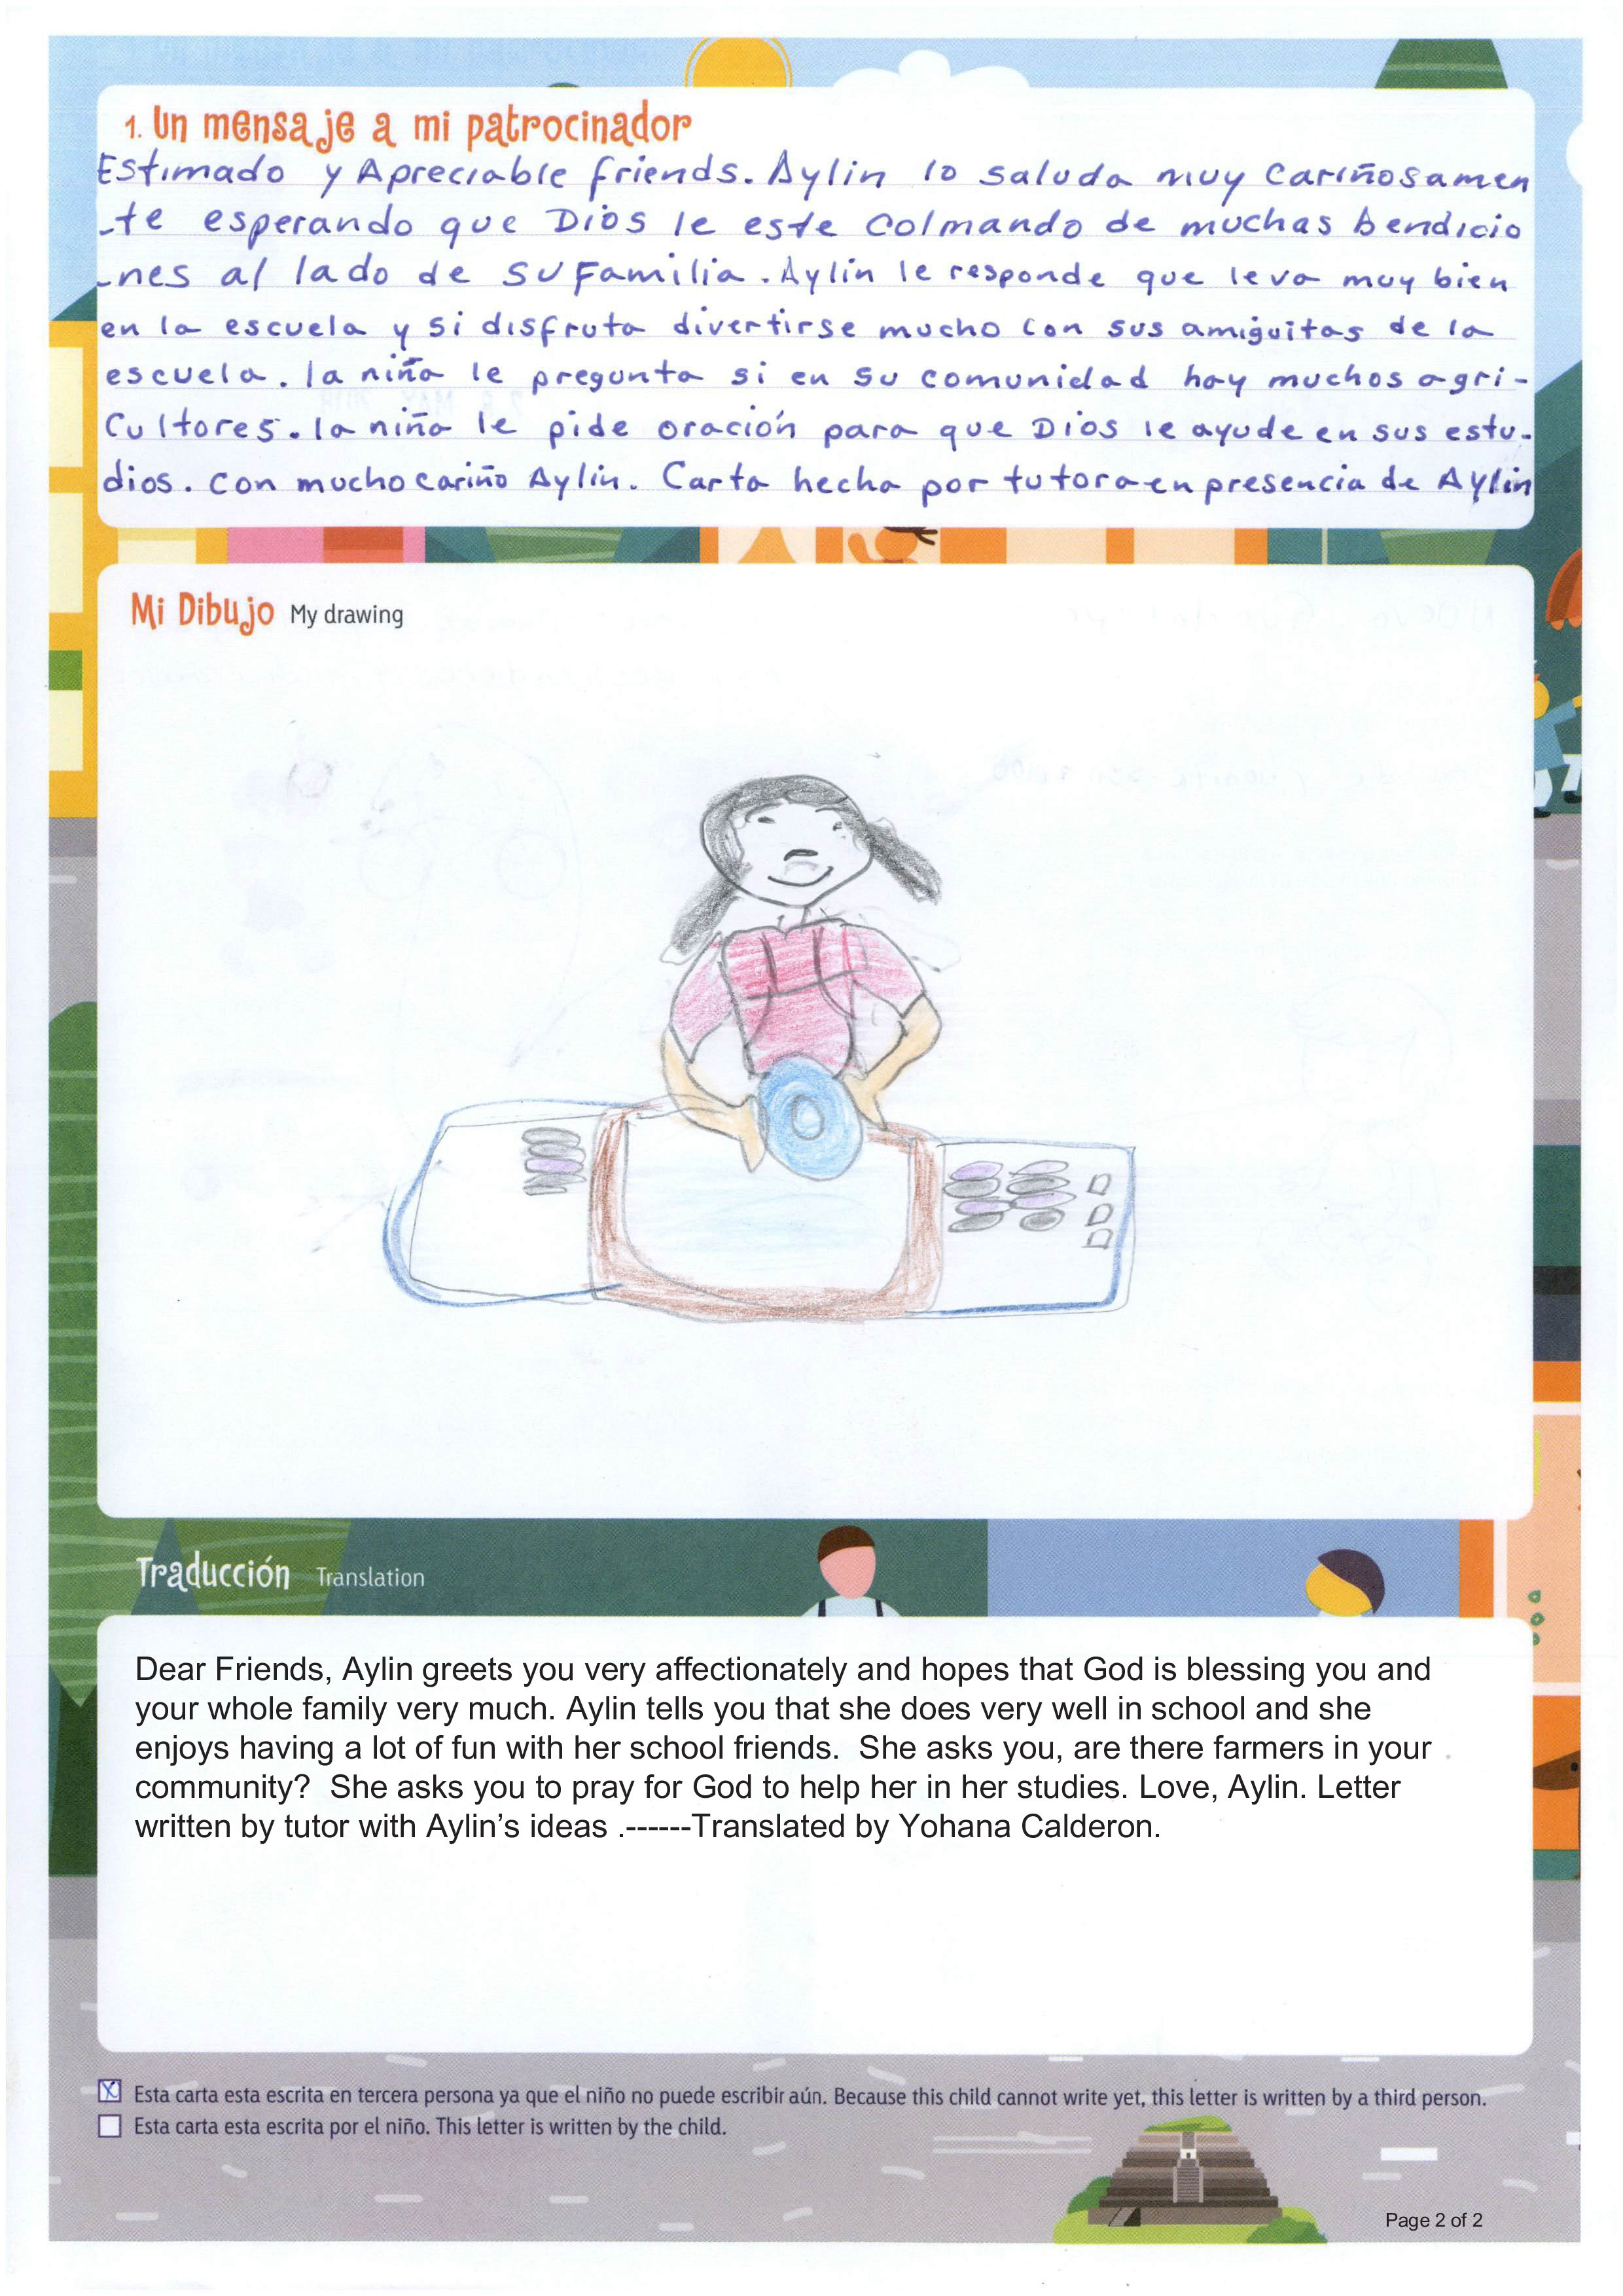 1. Un mensaje a mi patrocinador
Estimado y Apreciable friends. Aylin lo saluda muy Cariñosamen
-te esperando que Dios le este Colmando de muchas bendicio
-nes al lado de su Familia. Aylin le responde que le va muy bien
en la escuela y si disfruta divertirse mucho con sus amiguitas de la
escuela. la niña le pregunta si en su comunidad hay muchos agri-
Cultores. la niña le pide oración para que Dios le ayude en sus estu-
dios. con mucho cariño Aylin. Carta hecha por tutora en presencia de Aylin
Mi Dibujo My drawing
Traducción Translation
Dear Friends, Aylin greets you very affectionately and hopes that God is blessing you and
your whole family very much. Aylin tells you that she does very well in school and she
enjoys having a lot of fun with her school friends.  She asks you, are there farmers in your
community?  She asks you to pray for God to help her in her studies. Love, Aylin. Letter
written by tutor with Aylin’s ideas .------Translated by Yohana Calderon.
Esta carta esta escrita en tercera persona ya que el niño no puede escribir aún. Because this child cannot write yet, this letter is written by a third person.
Esta carta esta escrita por el niño. This letter is written by the child.
Page 2 of 2